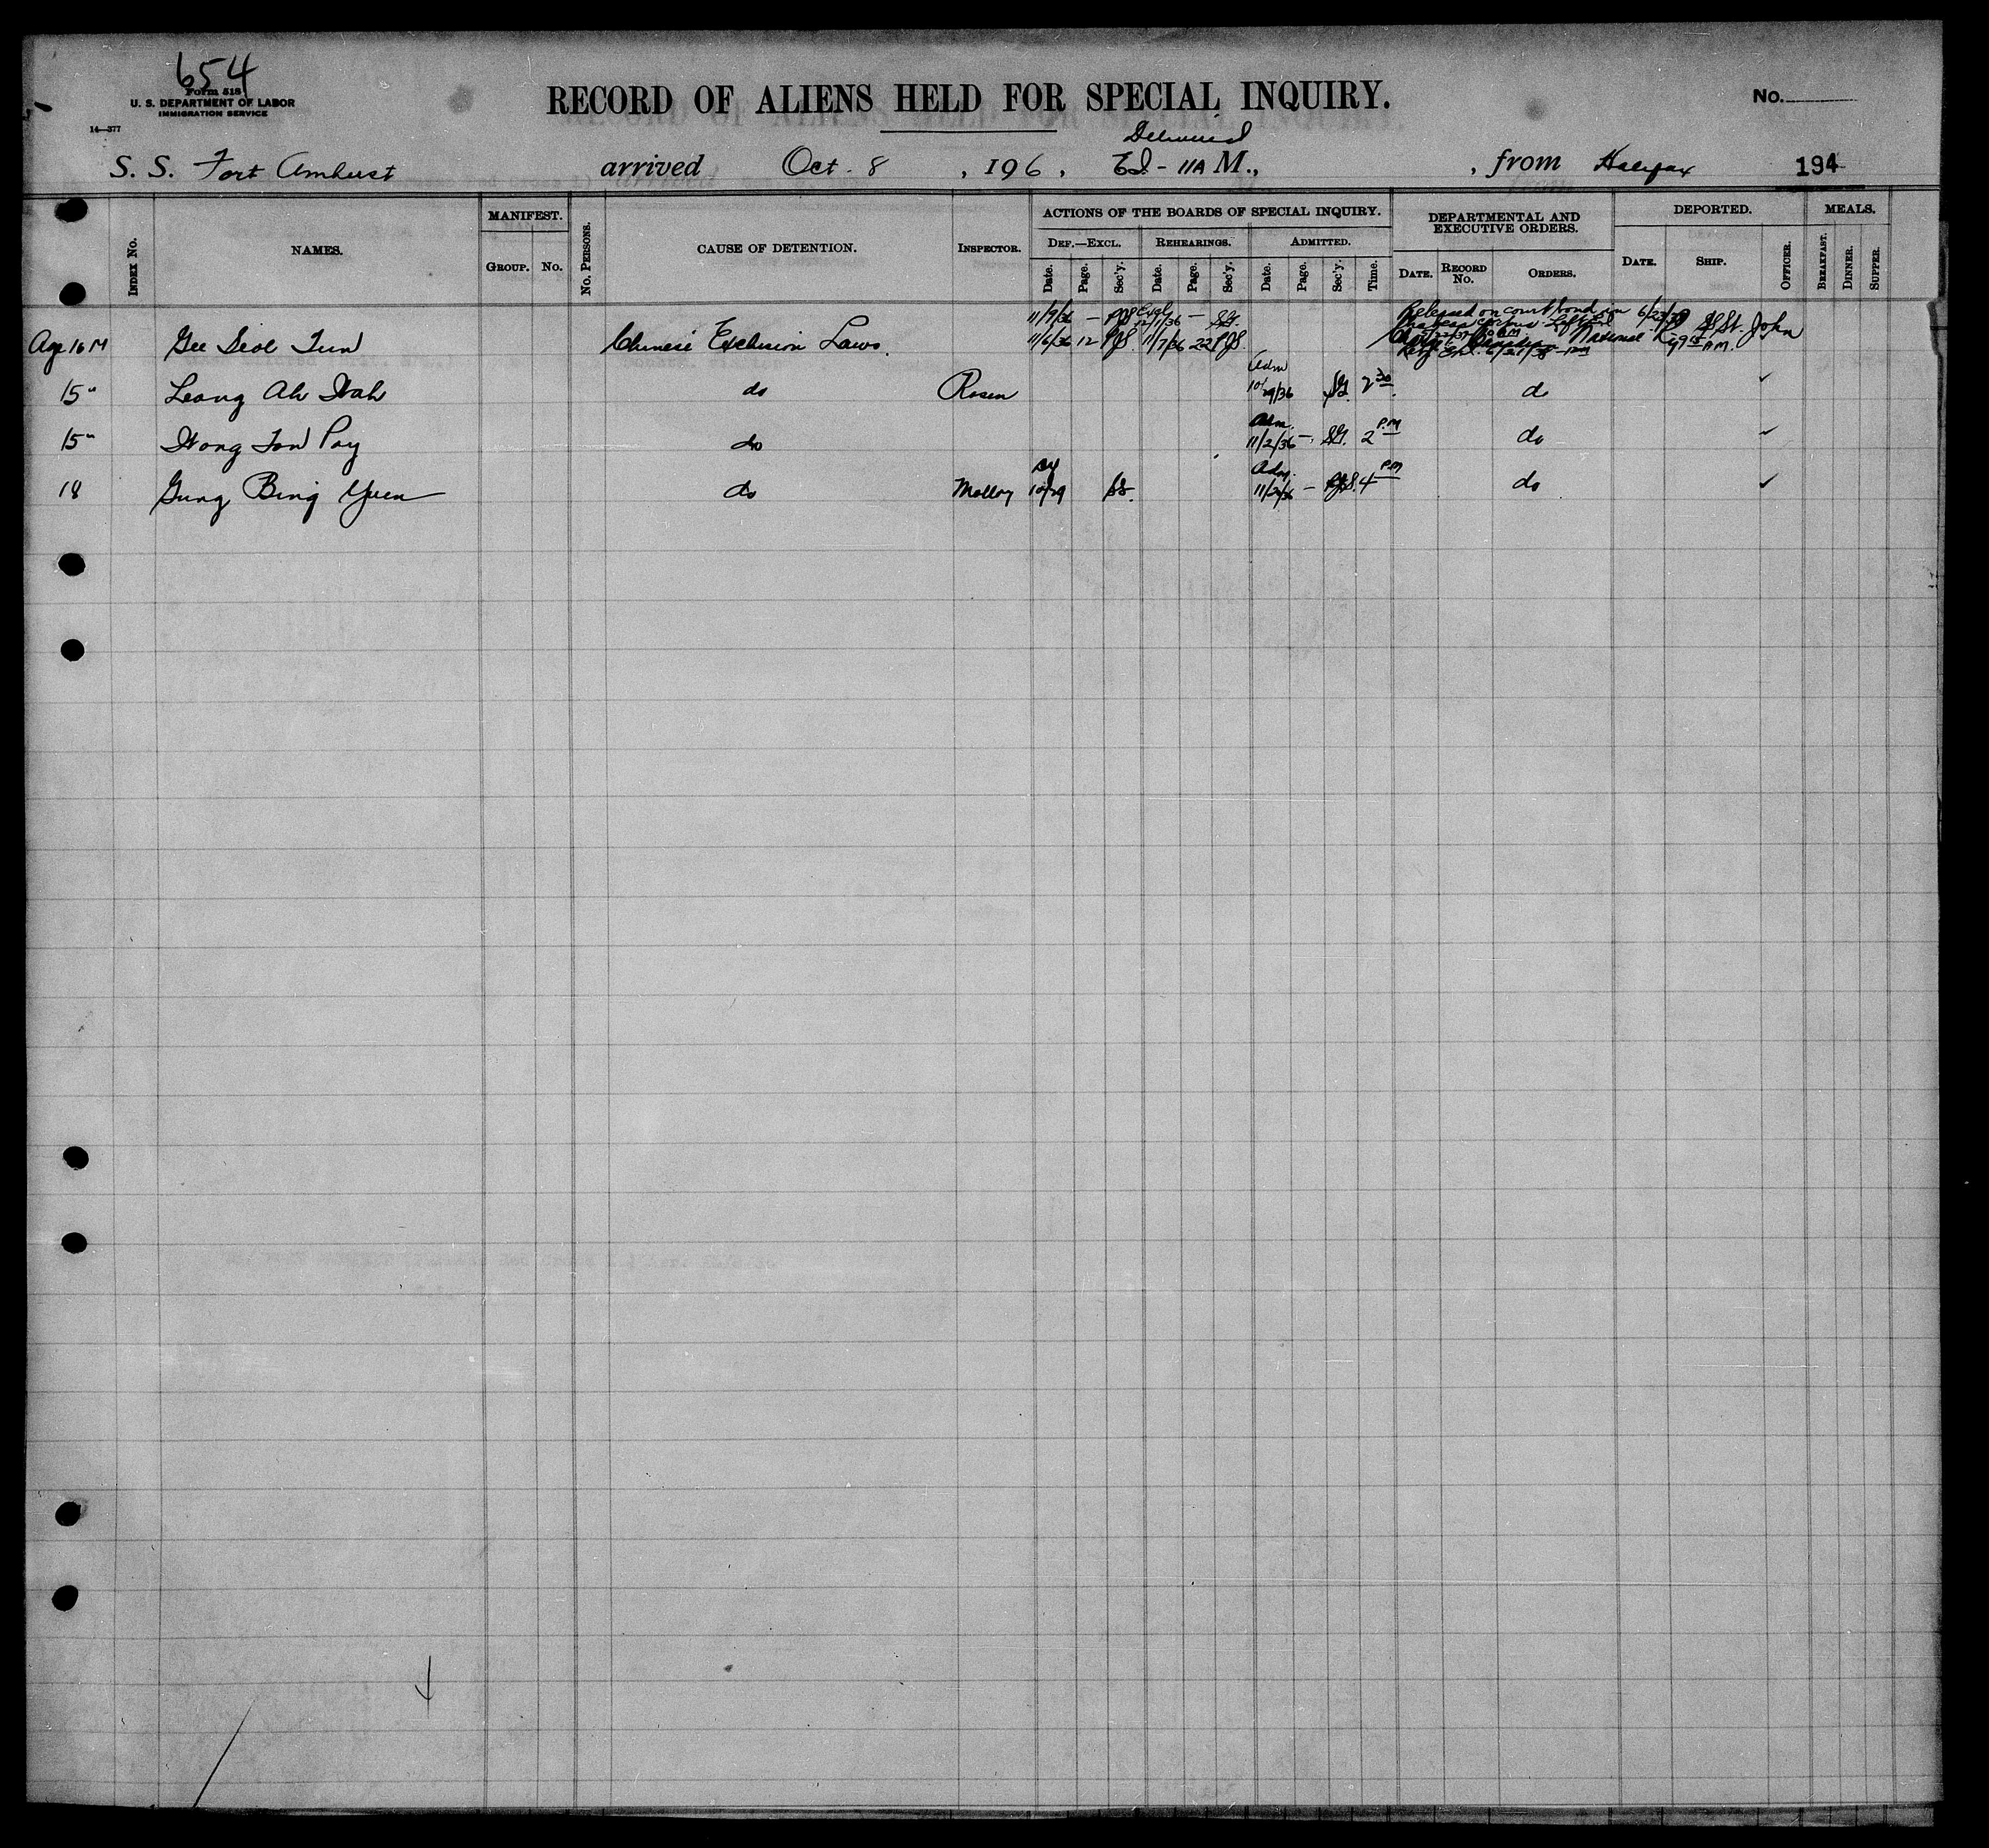 654
Form 518
U. S. DEPARTMENT OF LABOR
IMMIGRATION SERVICE
14—377
RECORD OF ALIENS HELD FOR SPECIAL INQUIRY.
No.
Delivered
S. S. Fort Amherst arrived Oct. 8, 196, EI - 11A M., , from Halifax 194
INDEX No.
NAMES.
MANIFEST.
GROUP. No.
No. PERSONS.
CAUSE OF DETENTION.
INSPECTOR.
ACTIONS OF THE BOARDS OF SPECIAL INQUIRY.
DEF.—EXCL. REHEARINGS. ADMITTED.
Date. Page. Sec'y. Date. Page. Sec'y. Date. Page. Sec'y. Time.
DEPARTMENTAL AND EXECUTIVE ORDERS.
DATE. RECORD No. ORDERS.
DEPORTED.
DATE. SHIP. OFFICER.
MEALS.
BREAKFAST. DINNER. SUPPER.
11/9/36 — PJS Excl 12/1/36 — SG. Released on court bond in 6/23/38 SS St. John
Age 16 M Gee Seol Tun Chinese Exclusion Laws. 11/6/36 12 PJS 11/7/36 22 PJS National
Adm
15" Leong Ah Wah do Rosen 10/29/36 SG. 2 30 do ✓
Adm. P.M
15" Wong Ton Poy do 11/2/36 —. SG. 2 do ✓
Adm. PM
18 Gung Bing Yuen do Molloy 10/29 SS. 11/2/36 — PJS. 4 do ✓